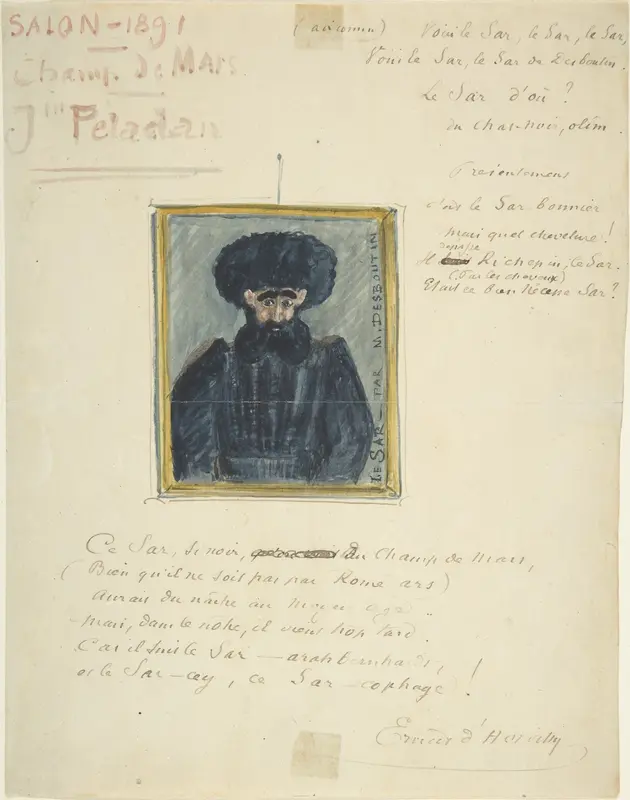 SALON-1891
Champ de MARS
Jin Peladan
Voici le Sar, le Sar, le Sar,
Voici le Sar, le Sar de Desboutin.
Le Sar d'où ?
du chat-noir, olim.
Presentement
le Sar bonnier
mais quel chevelure !
Richepin, le Sar.
(Par les cheveux)
Sar ?
LE SAR - PAR M. DESBOUTIN
Ce Sar, si noir, du Champ de Mars,
(Bien qu'il ne soit pas par Rome ars)
Aurait du naître au moyen age ..
mais, dans le nôtre, il vient trop tard.
Car il suit le Sar
et le Sar-cey, ce Sar-cophage !
Ernest d'Hervilly